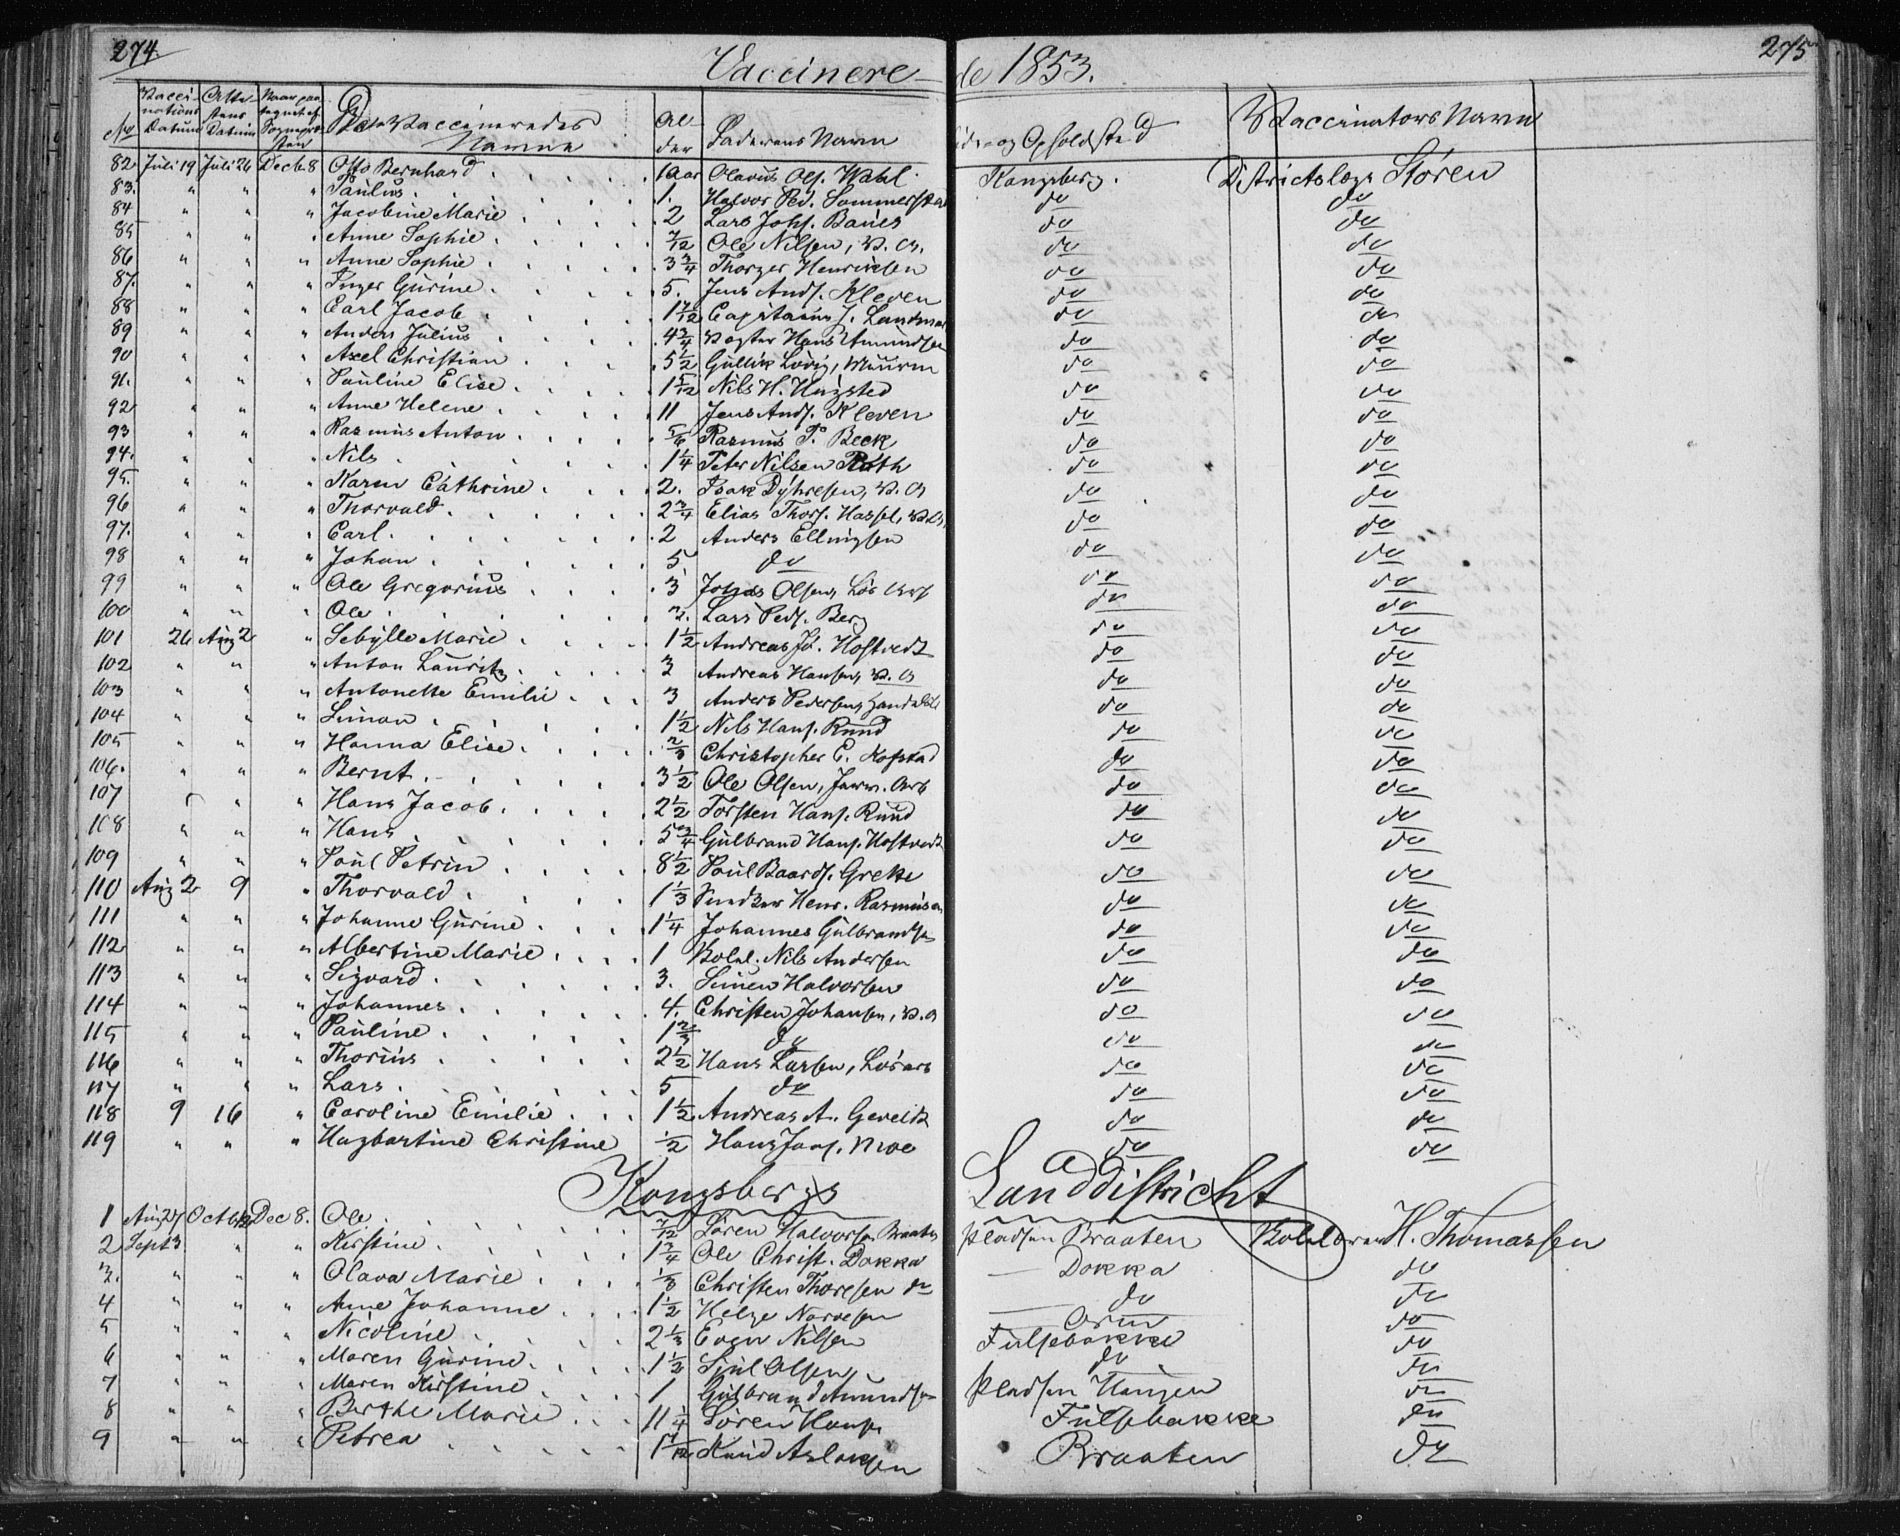 274. Vaccinerede 1853. 275
No Vaccinations Datum Attestens Datum Naar paategnet af Sognepræsten De Vaccineredes Navne Alder Faderens Navn og Opholdsted Vaccinators Navn
82 Juli 19 Juli 26 Decb 8 Otto Bernhard 1 Aar Olavus Ols. Wahl Kongsberg. Districtslæge Støren
83. " " " Paulus 1. Halvor Ped. do do
84 " " " Jacobine Marie 2 Lars Johs. do do
85 " " " Anne Sophie 7/12 Ole Nilsen, do do
86 " " " Anne Sophie 3 3/4 Thorger Henriksen do do
87. " " " Inger Gurine 5. Jens Ands. Kleven do do
88 " " " Carl Jacob Capitain J. do do
89 " " " Anders Julius 4 3/4 Hans Amundsen do do
90 " " " Axel Christian 5 1/2 Gullik do do
91. " " " Pauline Elise Nils H. do do
92 " " " Anne Helene 11 Jens Ands. Kleven do do
93 " " " Rasmus Anton 5/6 Rasmus P. Beck do do
94. " " " Nils 1 1/4 Peter Nilsen do do
95. " " " Karen Cathrine 2. Isak do do
96 " " " Thorvald 2 3/4 Elias Thors. Hassel, do do
97. " " " Carl 2 Anders Ellingsen do do
98 " " " Johan 5 do do do
99 " " " Ole Gregorius 3 Olsen, do do
100 " " " Ole Lars Peds. Berg do do
101 26 Aug 2 " Sebylle Marie 1 1/2 Andreas Jo. Hostvedt do do
102 " " " Anton Lauritz 3 Andreas Hansen, do do
103 " " " Antonette Emilie 3 Anders Pedersen, do do
104 " " " Simon 1 1/2 Nils Hans. Rund do do
105 " " " Hanna Elise 2/3 Christopher E. Kopstad do do
106. " " " Bernt 3 1/2 Ole Olsen, Jernv. Arb do do
107 " " " Hans Jacob 2 1/2 Torsten Hans. Rund do do
108 " " " Hans 5 3/4 Gulbrand Hans. Hostvedt do do
109 " " " Poul Petrin 8 1/2 Poul Baards. do do
110 Aug 2 9 " Thorvald 1 1/3 Snedker Henr. Rasmusen do do
111 " " " Johanne Gurine 1 1/4 Johannes Gulbrandsen do do
112 " " " Albertine Marie 1 Nils Andersen do do
113 " " " Sigvard 3. Simen Halvorsen do do
114 " " " Johannes 4. Christen Johansen, do do
115 " " " Pauline 1 2/3 do do do
116 " " " Thorius 2 1/2 Hans Larsen, Løsarb do do
117 " " " Lars 5 do do do
118 9 16 " Caroline Emilie 1 1/2 Andreas A. do do
119 " " " Hagbartine Christine 1/2 Hans Jans. Moe do do
Kongsbergs Landdistricht
1 Aug 27 Octb 12 Dec 8. Ole 7/12 Søren Halvorsen Braaten Pladsen Braaten H. Thomassen
2 Sept 3 " " Kirstine 1 3/4 Ole Christ. Dokka — Dokka do
3. " " " Olava Marie 1/3 Christen Thoresen do — do do
4 " " " Anne Johanne 1 1/2 Helge Narvesen do
5 " " " Nicoline 2 1/3 Even Nilsen Fulsebakke do
6 " " " Maren Gurine 1 1/2 Sjul Olsen do do
7 " " " Maren Kirstine 1 Gulbrand Amundsen Pladsen Haugen do
8 " " " Berthe Marie 11 1/4 Søren Hansen Fulsebakke do
9 " " " Petrea Knud Aslaksen Braaten do